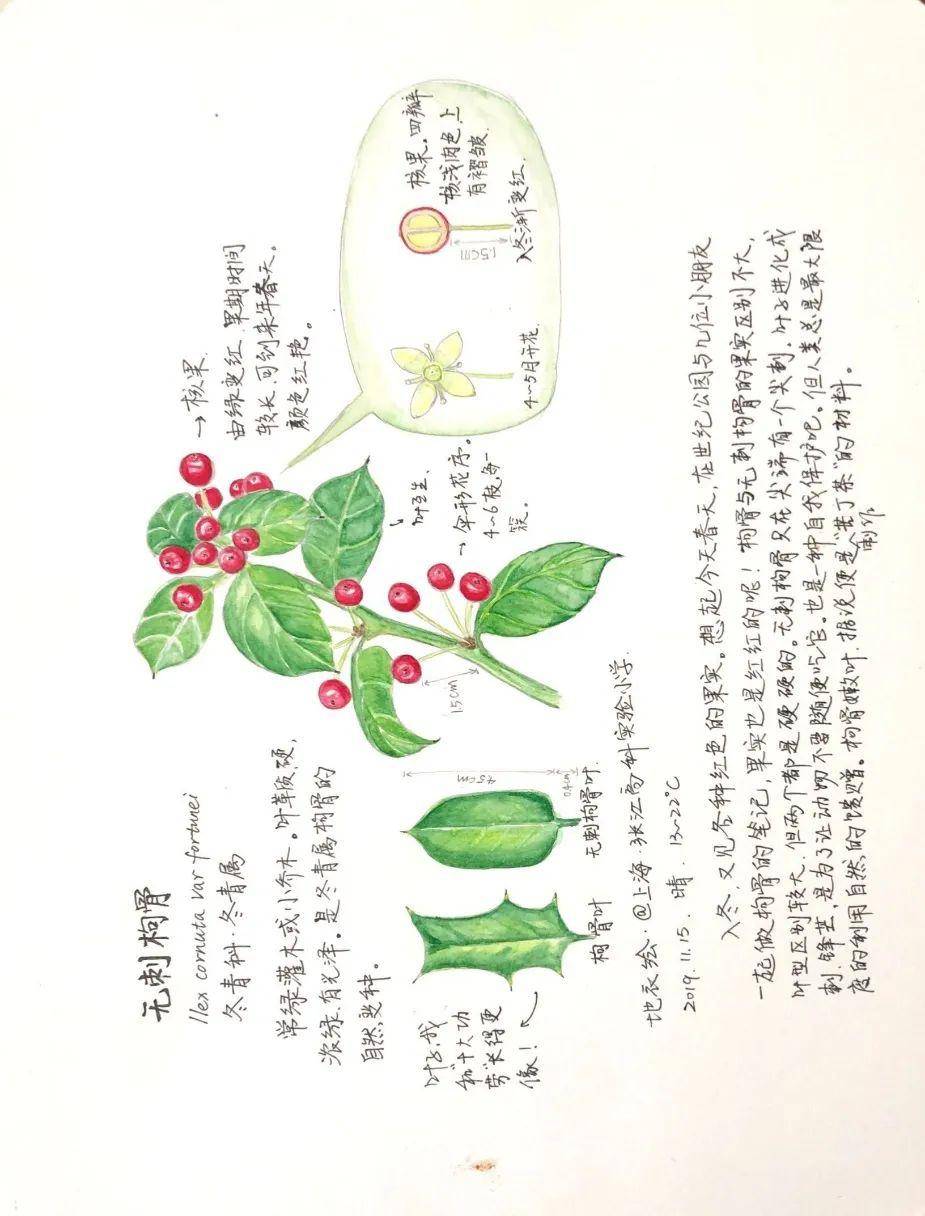 无刺枸骨
Ilex cornuta var·fortunei
冬青科·冬青属
常绿灌木或小乔木。叶革质,硬,
浓绿.有光泽。是冬青属枸骨的
自然变种。
→核果.
由绿变红.果期时间
较长.可到来年春天。
颜色红艳。
核果。四瓣
核浅肉色.上
有褶皱.
1.5cm
入冬渐变红.
4~5月开花.
叶互生.
→伞形花序。
4~6枝每一
簇。
1.5cm
叶子,我
和"十大功
劳"长得更
像!
枸骨叶
无刺枸骨叶
0.4cm
地衣绘·@上海·张江高科实验小学.
2019.11.15. 晴. 13~22℃
入冬.又见各种红色的果实。想起今天春天,在世纪公园与几位小朋友
一起做枸骨的笔记,果实也是红红的呢!枸骨与无刺枸骨的果实区别不大,
叶型区别较大.但两个都是硬硬的。无刺枸骨只在尖端有一个尖刺.叶子进化成
刺.锋芒,是为了让动物不要随便吃它。也是一种自我保护吧。但人类总是最大限
度的利用自然的馈赠。枸骨嫩叶.据说便是制作"苦丁茶"的材料。